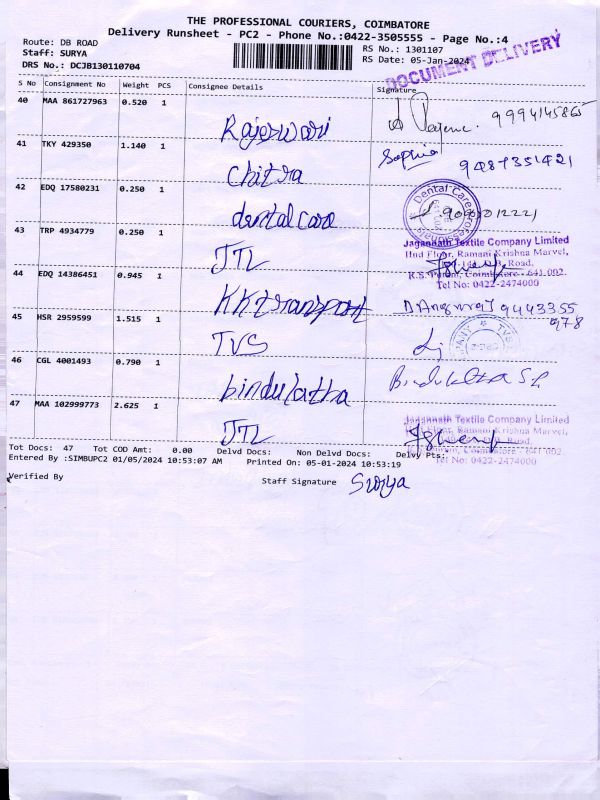 THE PROFESSIONAL COURIERS, COIMBATORE
Delivery Runsheet - PC2 - Phone No.:0422-3505555 - Page No.:4
Route: DB ROAD
Staff: SURYA
DRS No.: DCJB130110704
RS No.: 1301107
RS Date: 05-Jan-2024
DOCUMENT DELIVERY
S No Consignment No Weight PCS Consignee Details Signature
40 MAA 861727963 0.520 1 Rajeswari 9994145865
41 TKY 429350 1.140 1 Chitra Sophia 9487351421
42 EDQ 17580231 0.250 1 dental care
Dental Care Professionals
43 TRP 4934779 0.250 1 JTL
Jagannath Textile Company Limited
IInd Floor, Ramani Krishna Marvel,
Road,
R.S. Puram, Coimbatore - 641 002.
Tel No: 0422-2474000
44 EDQ 14386451 0.945 1 KK transport 9443355
978
45 HSR 2959599 1.515 1 TVS
TVS
46 CGL 4001493 0.790 1 bindulatha
47 MAA 102999773 2.625 1 JTL
Jagannath Textile Company Limited
IInd Floor, Ramani Krishna Marvel,
Road,
R.S. Puram, Coimbatore - 641 002.
Tel No: 0422-2474000
Tot Docs: 47 Tot COD Amt: 0.00 Delvd Docs: Non Delvd Docs: Delvy Pts:
Entered By :SIMBUPC2 01/05/2024 10:53:07 AM Printed On: 05-01-2024 10:53:19
Verified By Staff Signature Surya